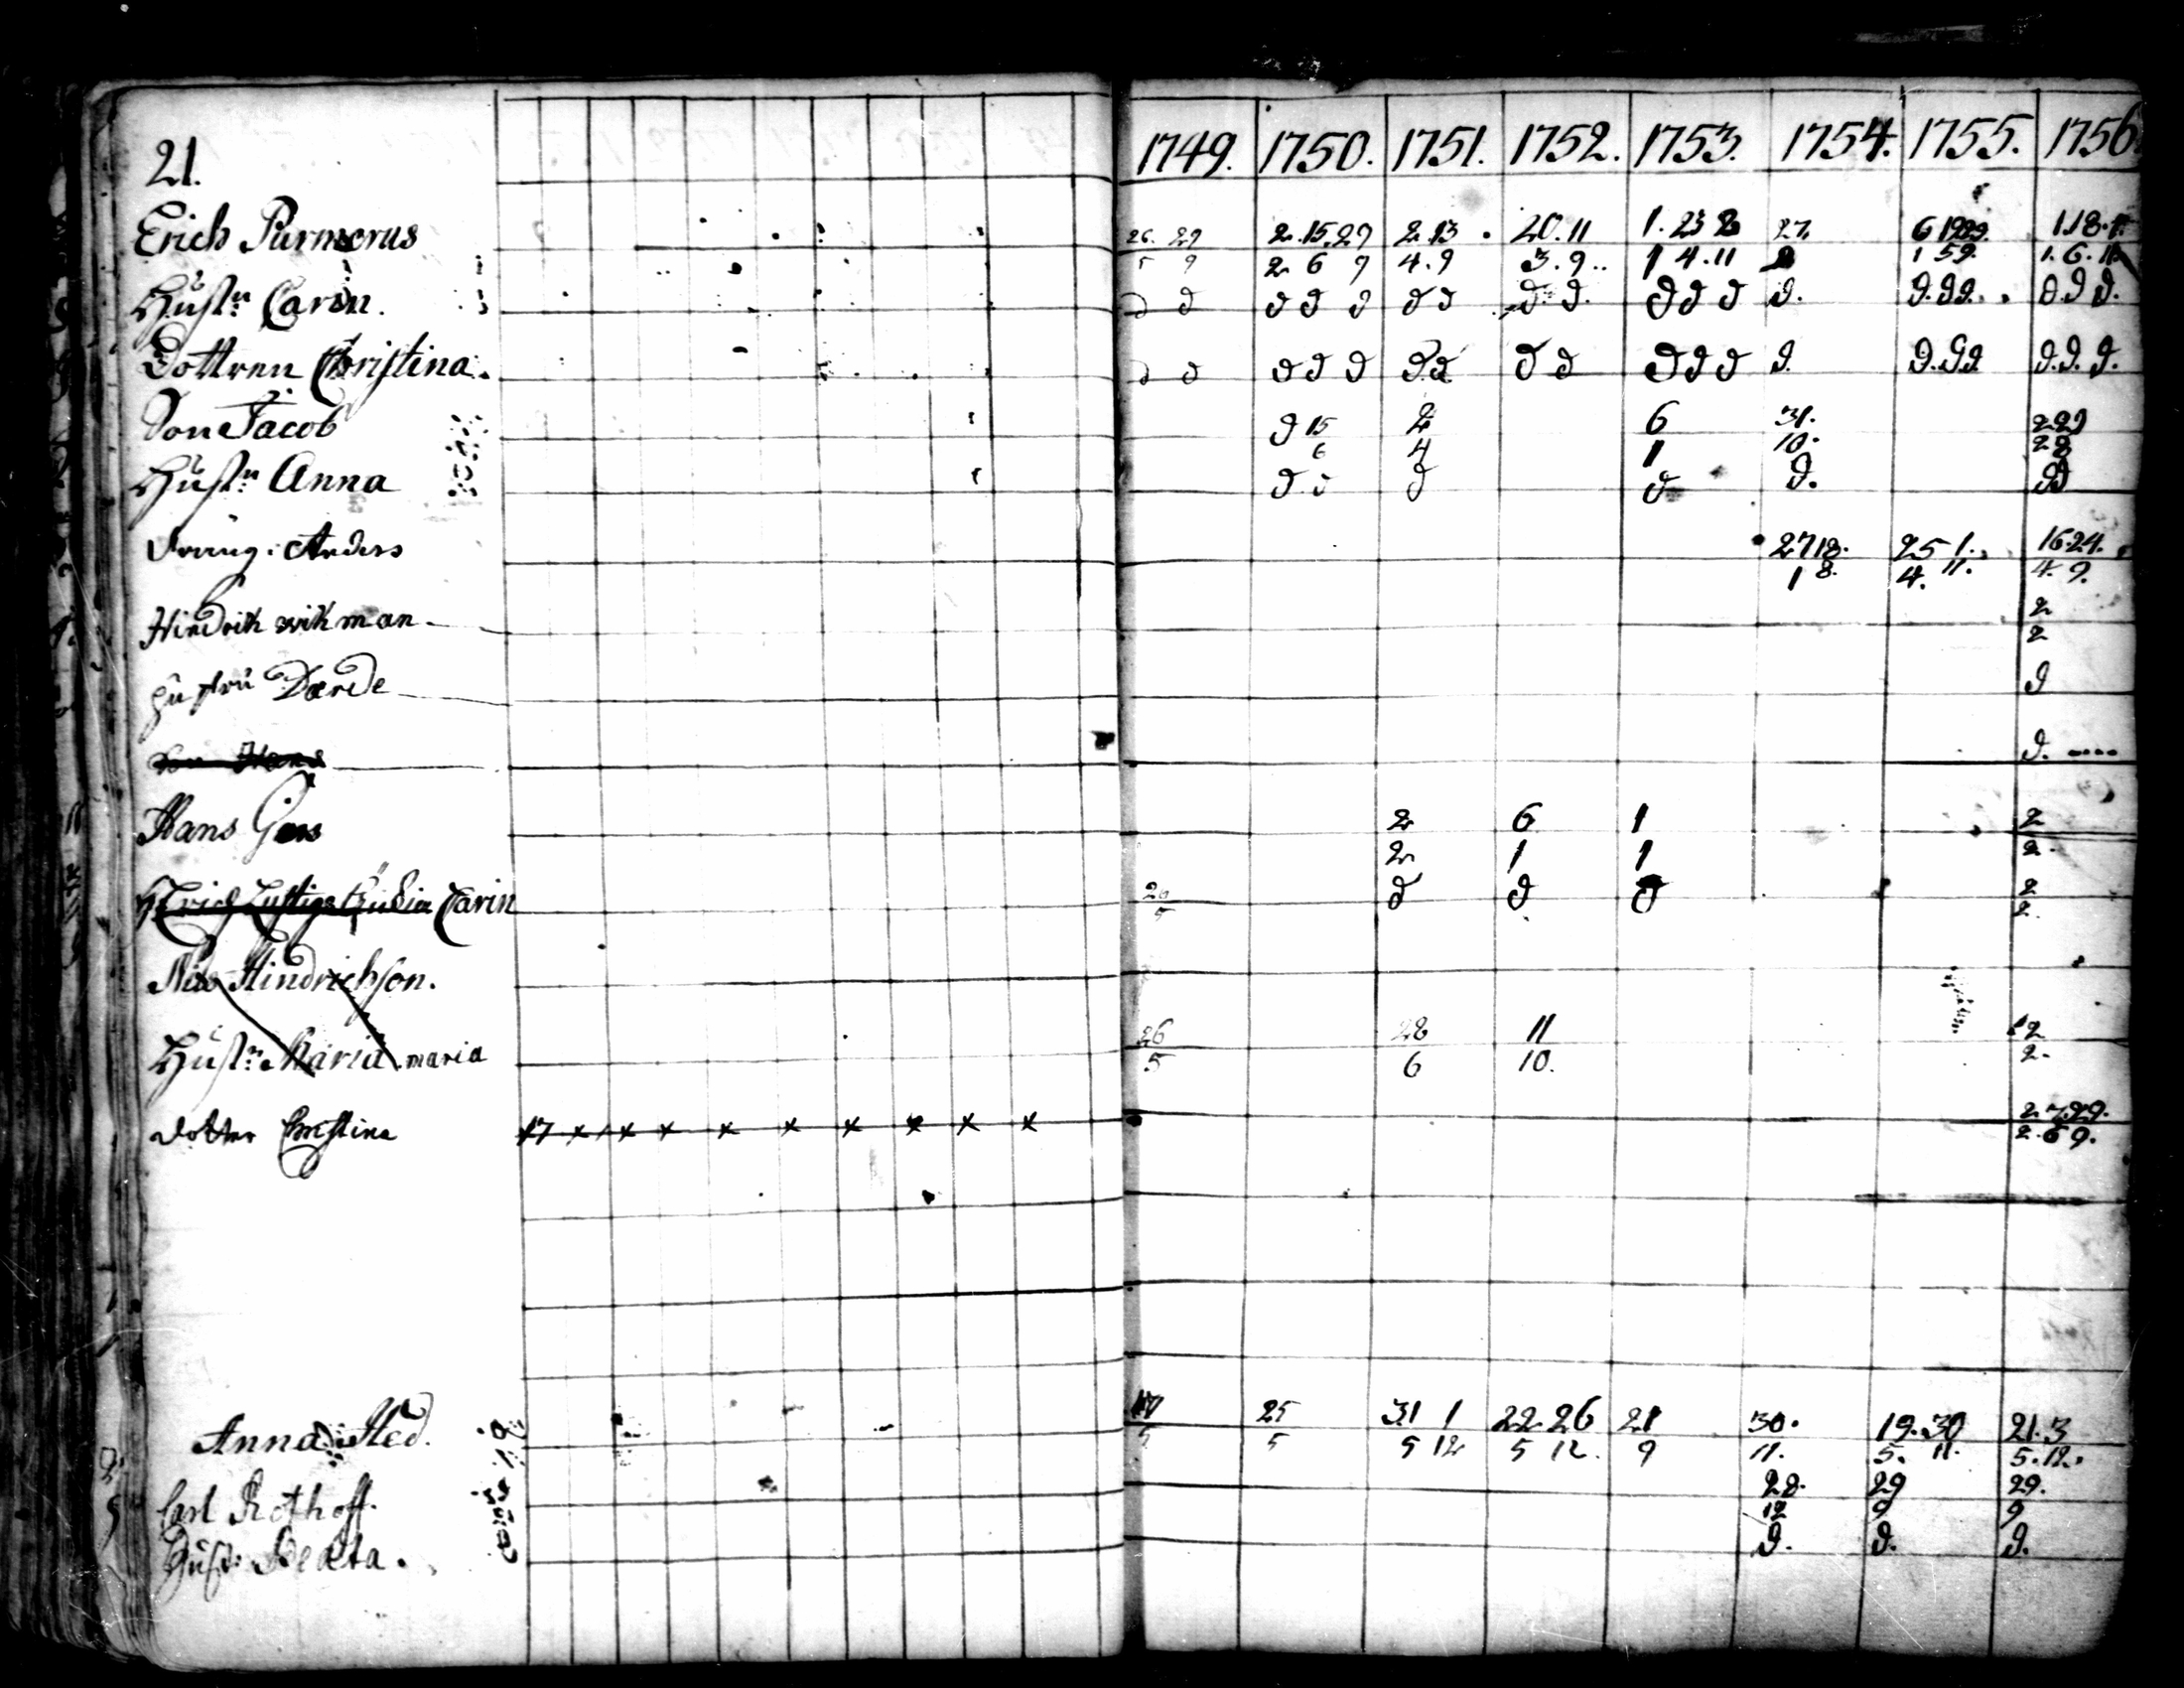 21.
1749. 1750. 1751. 1752. 1753. 1754. 1755. 1756
Erich Purmorus 26. 29 2.15.29 2.13. 20.11 1.23 2 27. 6 1929. 1.18.
5 9 2 6 9 4.9 3.9.. 1 4.11 1 59. 1.6.11
Hustr: Carin. d d d d d d d d d. d d d d. d.d.d. d.d d.
Dottren Christina. d d d d d d.d d d d d d d. d.d.d d.d.d.
Son Jacob d 15 2 6 31. 229
6 4 1 10. 28
Hustr: Anna d d d d d. dd
Dräng: Anders 27 18. 25 1. 16.24.
1 8. 4. 11. 4. 9.
Hindrik wikman 2
2
hustru Darde d
Son Hans d.
Hans 2 6 1 2
2 1 1 2.
Erich Carin d d d 2
5 2
Nils Hindrichson.
Hustr: Maria maria 26 28 11 12
5 6 10. 2.
dotter Christina 17 x x x x x x x x x 2.7.29.
2.6 9.
Anna Med. 17 25 31 1 22 26 21 30. 19.30 21.3
5 5 5 12 5 12. 9 11. 5. 11. 5.12.
Carl Rothoff. 28. 29 29.
12 9 9
Hust: Beata. d. d. d.